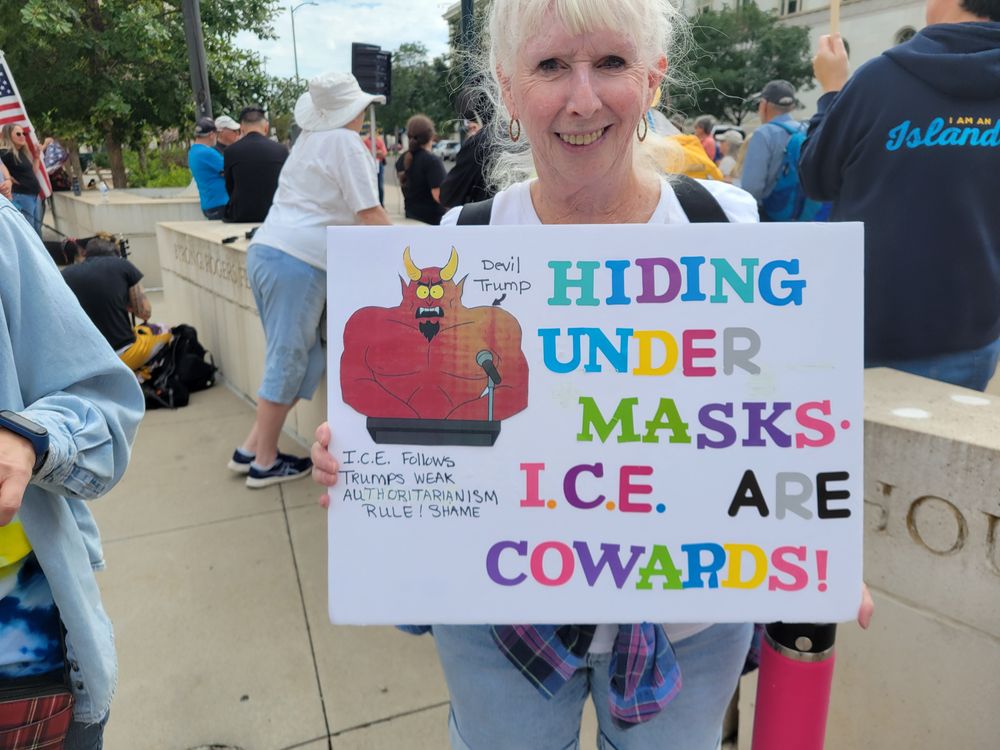 Devil
Trump
HIDING
UNDER
MASKS.
I.C.E. ARE
COWARDS!
I.C.E. FOLLOWS
TRUMPS WEAK
AUTHORITARIANISM
RULE! SHAME
I AM AN